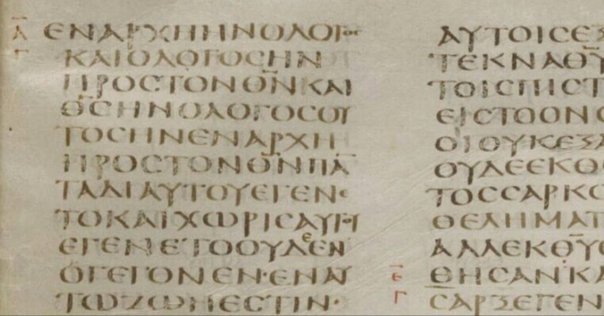 Α̅ ΕΝΑΡΧΗΗΝΟΛΟΓΟϹ
Γ ΚΑΙΟΛΟΓΟϹΗΝ
ΠΡΟϹΤΟΝΘ̅Ν̅ΚΑΙ
Θ̅Ϲ̅ΗΝΟΛΟΓΟϹΟΥ
ΤΟϹΗΝΕΝΑΡΧΗ
ΠΡΟϹΤΟΝΘ̅Ν̅ΠΑ
ΤΑΔΙΑΥΤΟΥΕΓΕΝΕ
ΤΟΚΑΙΧΩΡΙϹΑΥΤΟΥ
ΕΓΕΝΕΤΟΟΥΔΕΕΝ
ΟΓΕΓΟΝΕΝ·ΕΝΑΥ
ΤΩΖΩΗΕϹΤΙΝ·
ΑΥΤΟΙϹΕΞ
ΤΕΚΝΑΘ̅Υ̅
ΤΟΙϹΠΙϹΤ
ΕΙϹΤΟΟΝΟ
ΟΙΟΥΚΕΞΑ
ΟΥΔΕΕΚΘ
ΤΟϹϹΑΡΚΟ
ΘΕΛΗΜΑΤ
ΑΛΛΕΚΘ̅Υ̅
Ε̅ ΘΗϹΑΝ·ΚΑ
Γ ϹΑΡΞΕΓΕΝ